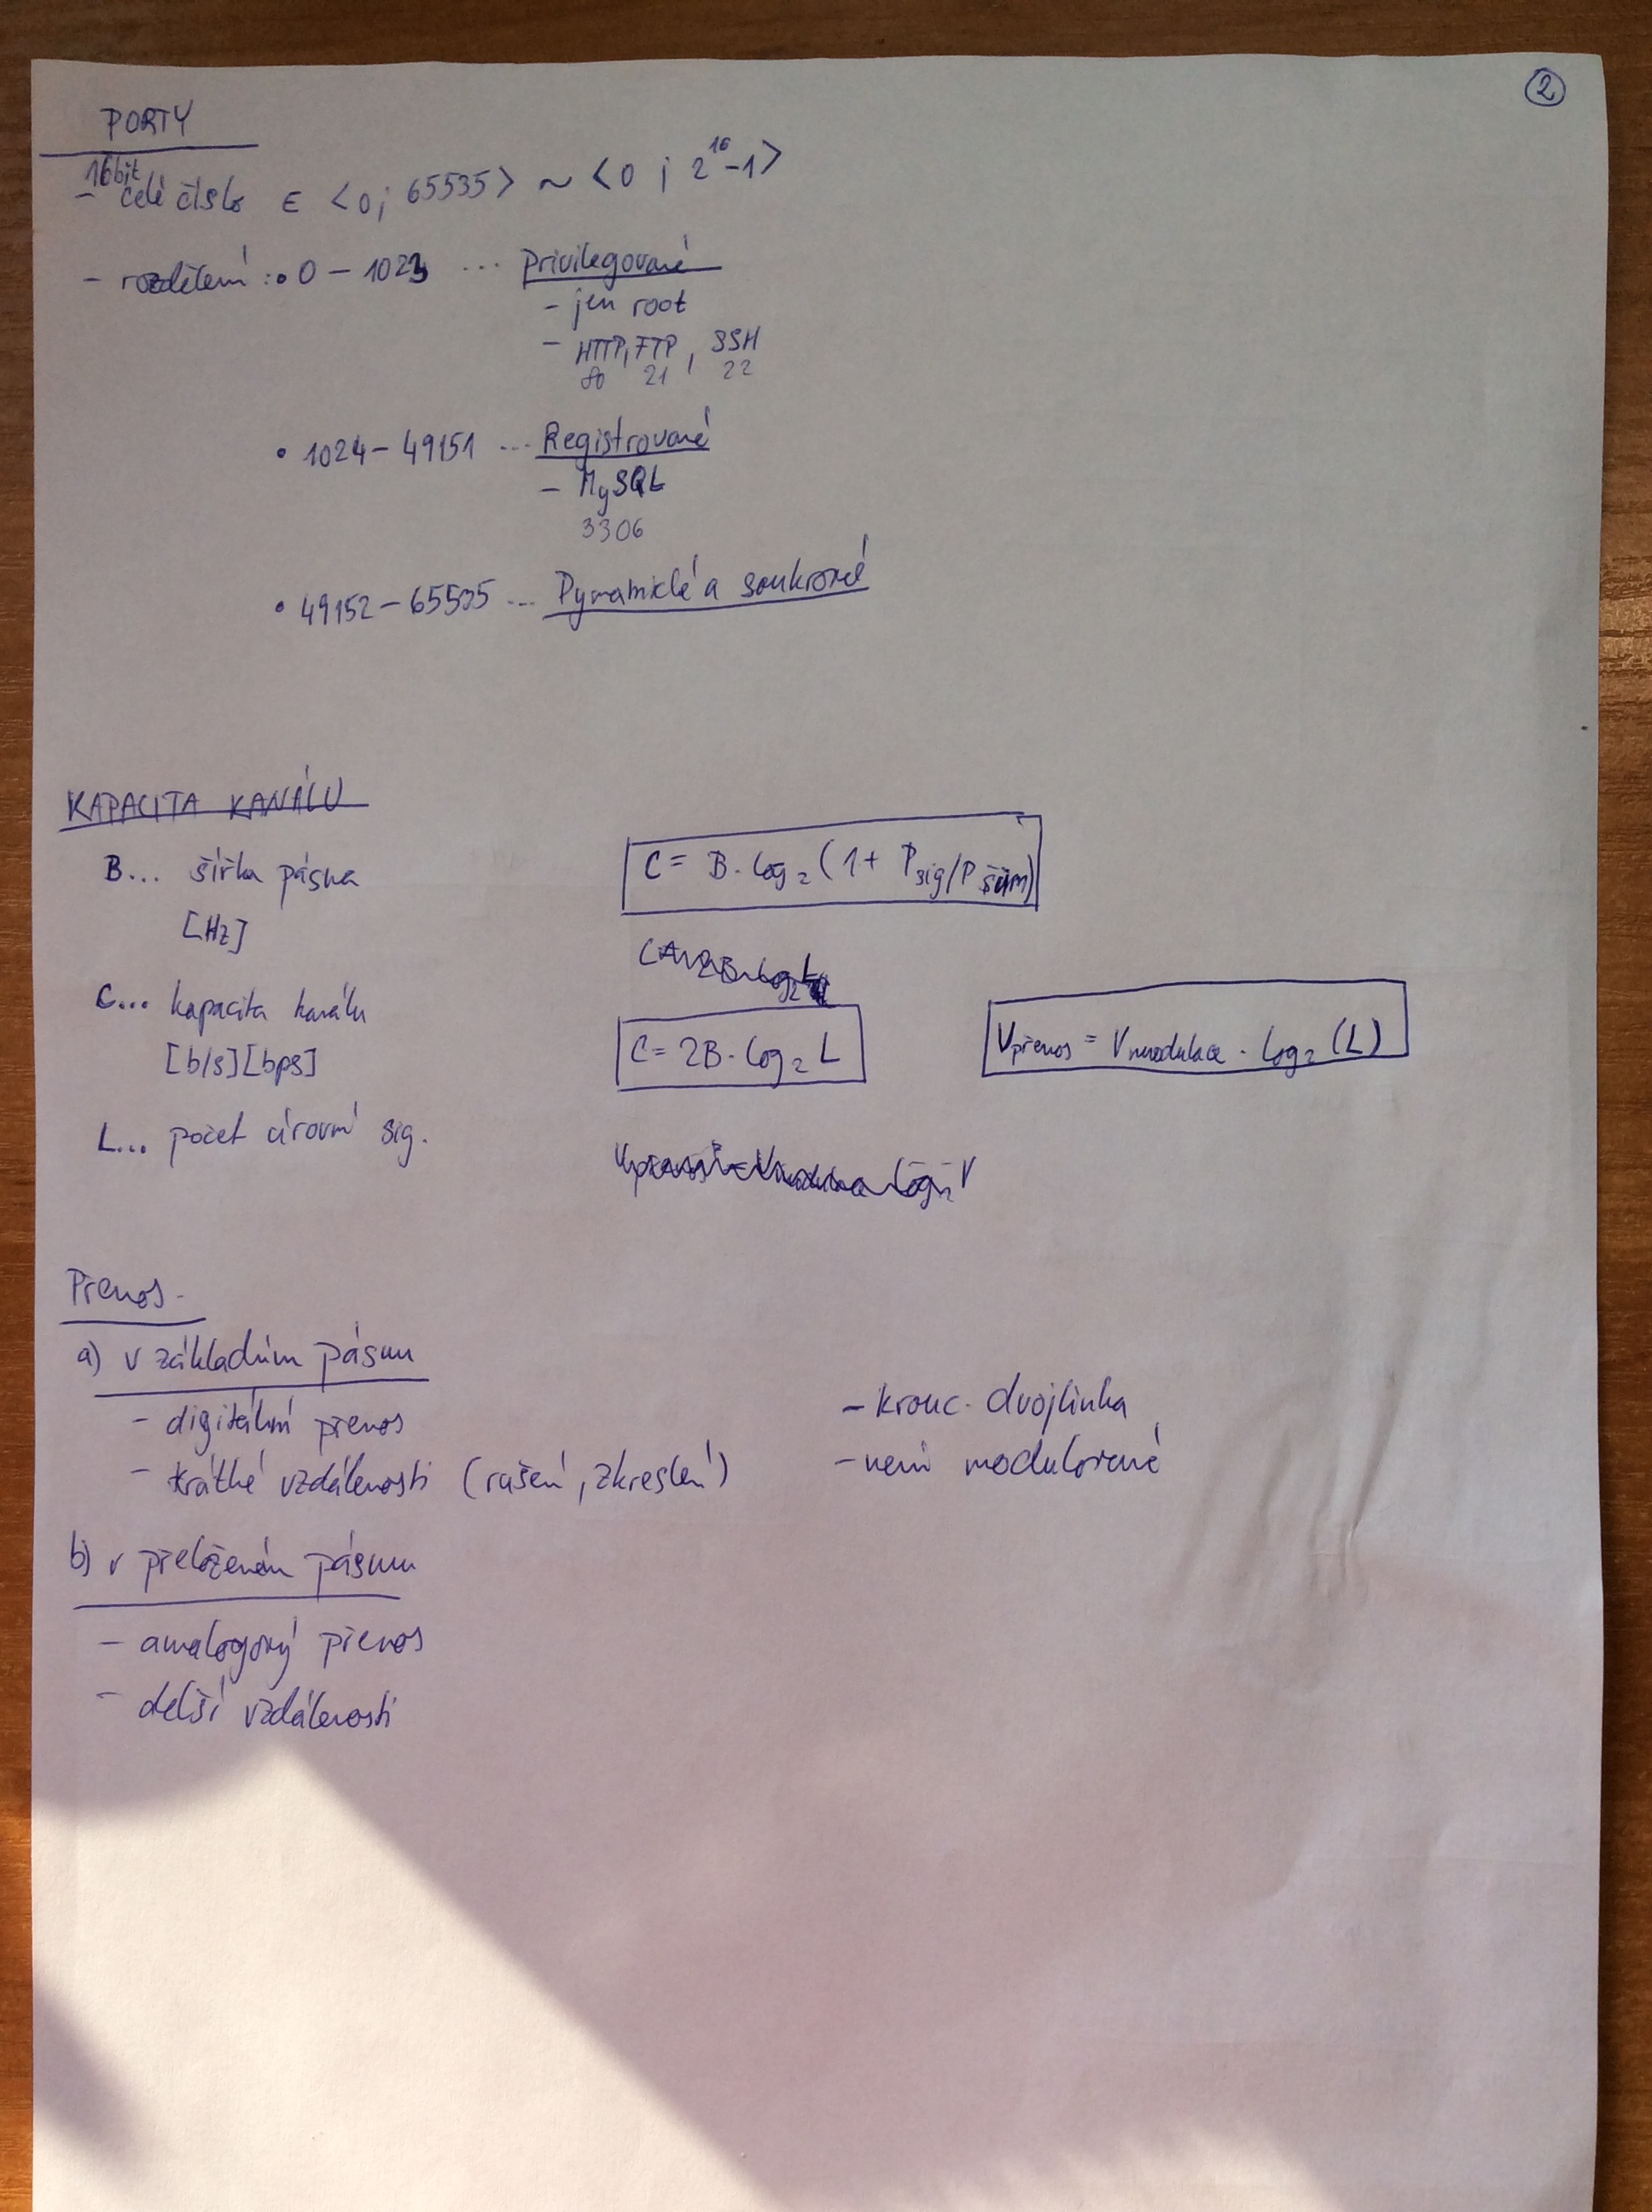 2
PORTY
16bit
- celé číslo ∈ <0; 65535> ~ <0; 2^16-1>
- rozdělení: • 0 - 1023 ... Privilegované
- jen root
- HTTP, FTP, SSH
80 21 22
• 1024 - 49151 ... Registrované
- MySQL
3306
• 49152 - 65535 ... Dynamické a soukromé
KAPACITA KANÁLU
B... šířka pásma
[Hz]
C = B · log₂ (1 + Psig/Pšum)
C... kapacita kanálu
[b/s][bps]
C = 2B · log₂ L
Vpřenos = Vmodulace · log₂ (L)
L... počet úrovní sig.
Přenos.
a) v základním pásmu
- digitální přenos
- krátké vzdálenosti (rušení, zkreslení)
- krouc. dvojlinka
- není modulované
b) v přeloženém pásmu
- analogový přenos
- delší vzdálenosti